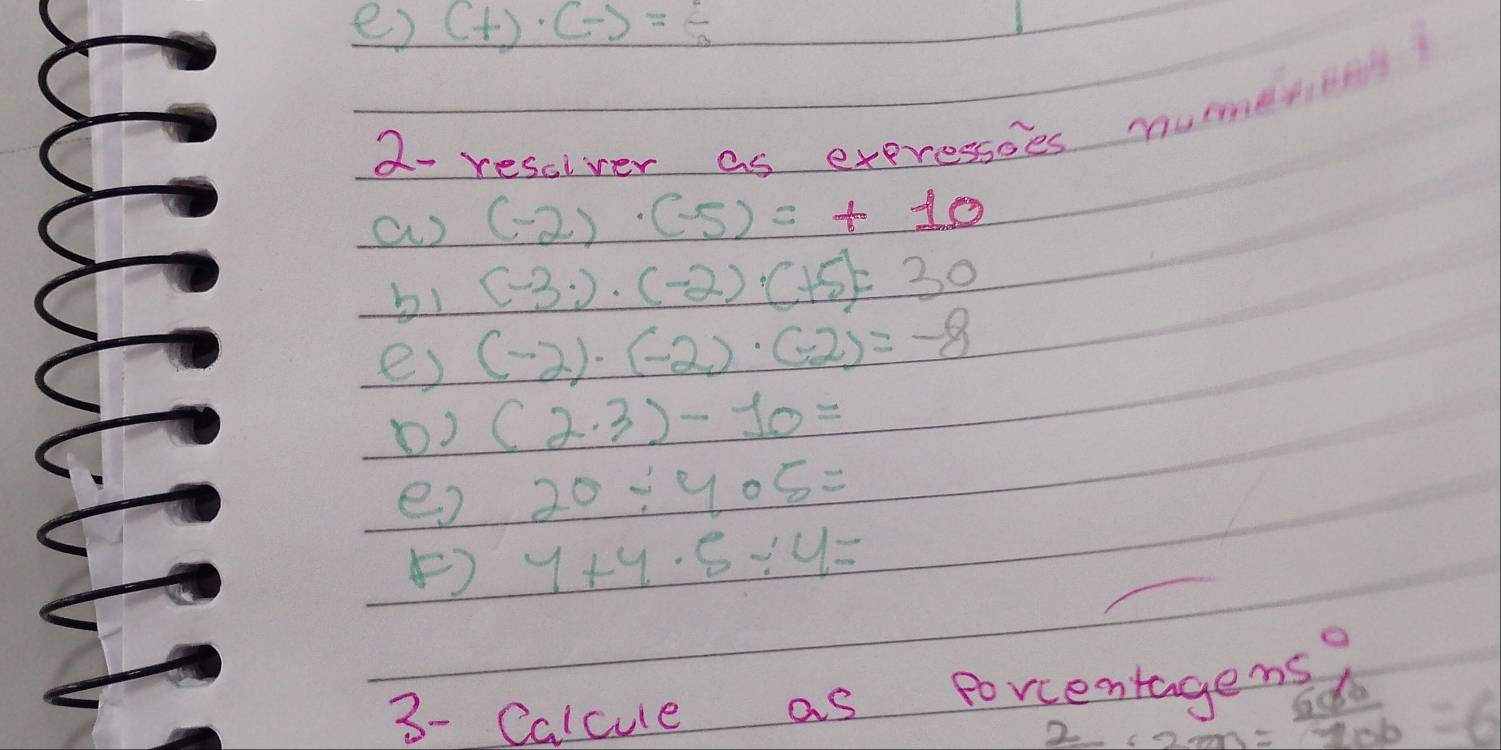 e) (+) · (-) = -
2- resolver as expressões numéricas
a) (-2) · (-5) = + 10
b) (-3) · (-2) · (+5) = 30
e) (-2) · (-2) · (-2) = -8
D) (2.3) - 10 =
e) 20 ÷ 4 · 5 =
F) 4 + 4 · 5 ÷ 4 =
3- Calcule as Porcentagens